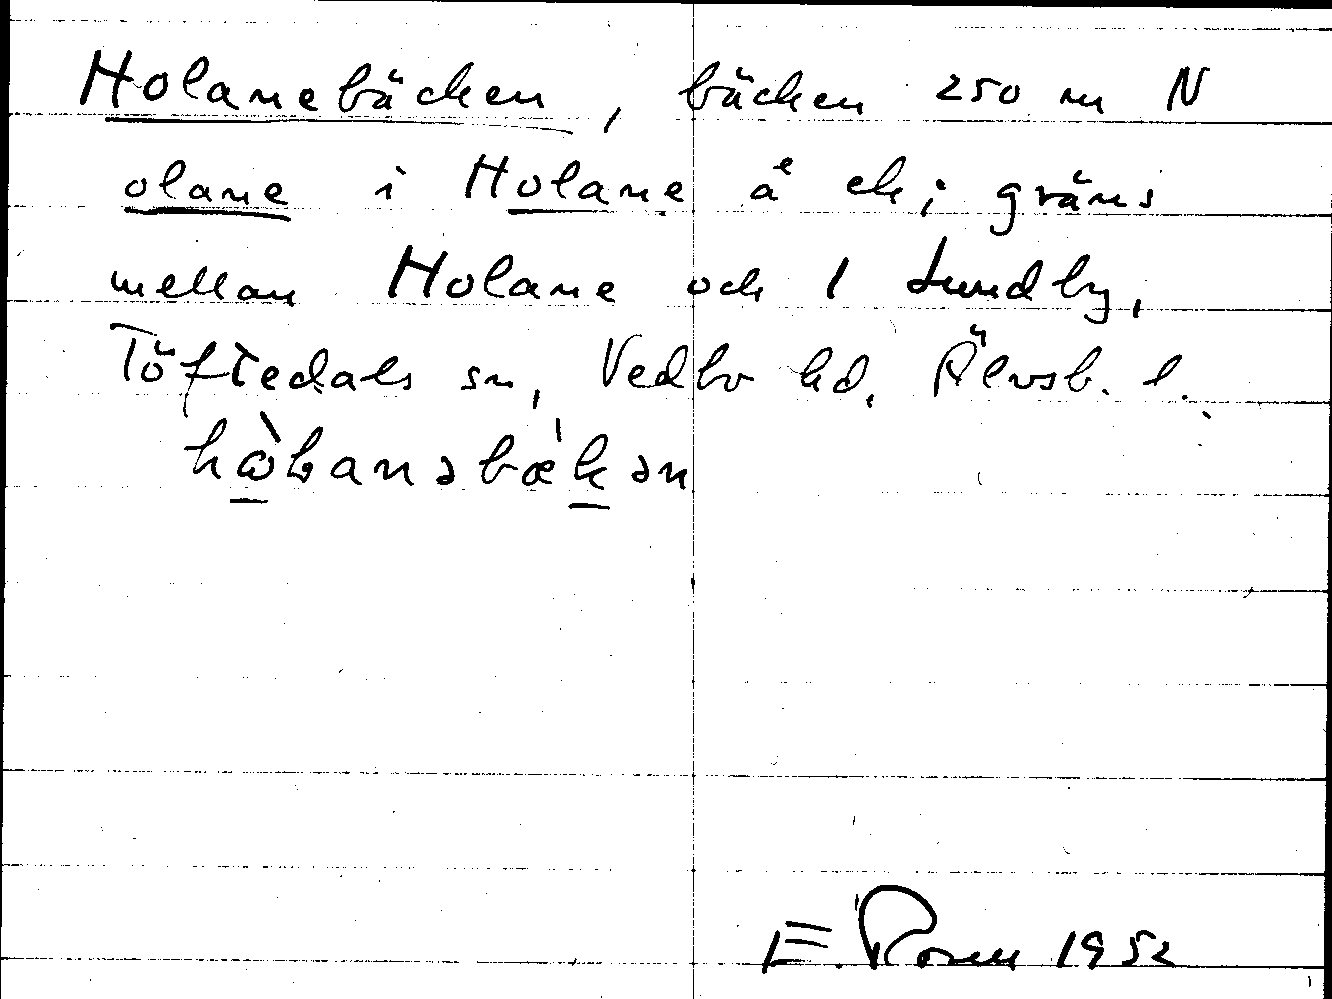 Holanebäcken, bäcken 250 m N
olane i Holane å ek; gräns
mellan Holane och 1 Lundby,
Töftedals sn, Vedbo hd, Älvsb. l.
E. Rosell 1952